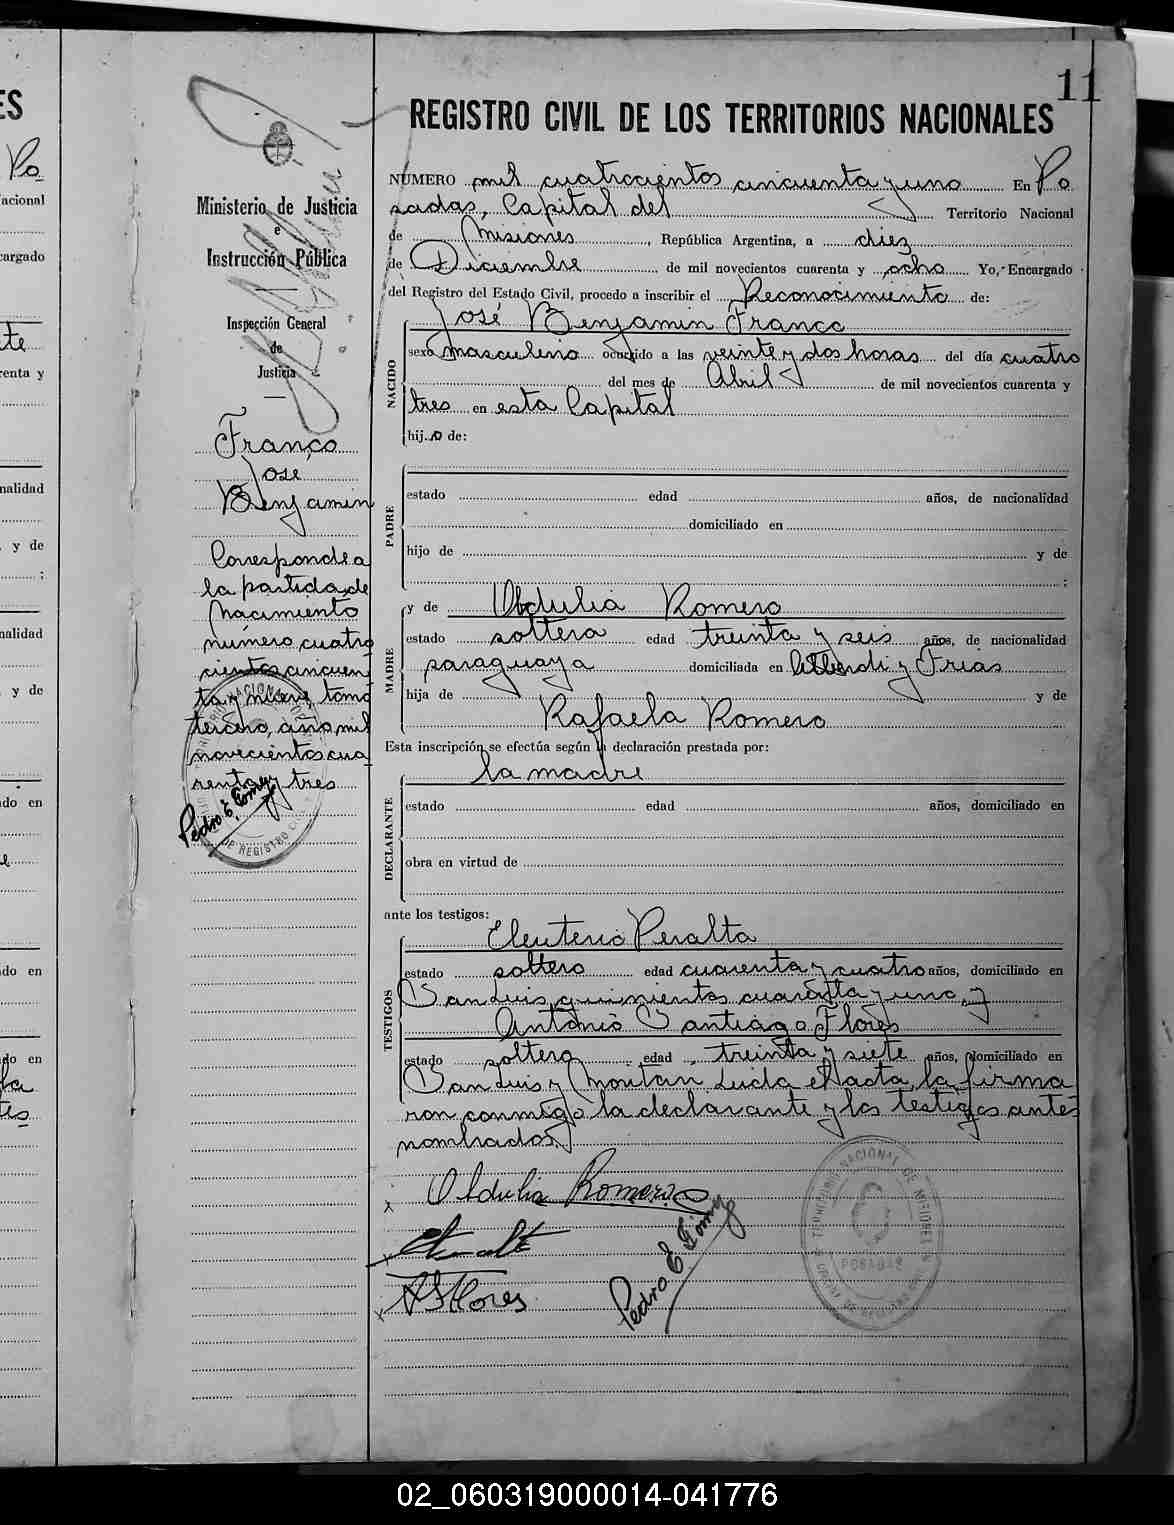 11
REGISTRO CIVIL DE LOS TERRITORIOS NACIONALES
NUMERO mil cuatrocientos cincuenta y uno En Po
sadas, Capital del Territorio Nacional
de Misiones, República Argentina, a diez
de Diciembre de mil novecientos cuarenta y ocho Yo, Encargado
del Registro del Estado Civil, procedo a inscribir el Reconocimiento de:
José Benjamin Franco
NACIDO
sexo masculino ocurrido a las veinte y dos horas del día cuatro
del mes de Abril de mil novecientos cuarenta y
tres en esta Capital
hijo de:
PADRE
estado edad años, de nacionalidad
domiciliado en
hijo de y de
:
MADRE
y de Obdulia Romero
estado soltera edad treinta y seis años, de nacionalidad
paraguaya domiciliada en y Frias
hija de y de
Rafaela Romero
Esta inscripción se efectúa según la declaración prestada por:
la madre
DECLARANTE
estado edad años, domiciliado en
obra en virtud de
ante los testigos:
TESTIGOS
Eleuterio Peralta
estado soltero edad cuarenta y cuatro años, domiciliado en
San Luis quinientos cuarenta y uno, y
Antonio Santiago Flores
estado soltero edad treinta y siete años, domiciliado en
San Luis y Leida el acta, la firma
ron conmigo la declarante y los testigos antes
nombrados
Obdulia Romero
A S Flores
Pedro E. Gómez
TERRITORIO NACIONAL DE MISIONES
POSADAS
OFICINA DE REGISTRO CIVIL
Ministerio de Justicia
e
Instrucción Pública
Inspección General
de
Justicia
Franco
José
Benjamin
Corresponde a
la partida de
Nacimiento
número cuatro
cientos cincuen
ta y nueve, tomo
tercero, año mil
novecientos cua
renta y tres
Pedro E. Gómez
ES
Po
acional
cargado
te
renta y
nalidad
y de
:
nalidad
y de
do en
do en
do en
02_060319000014-041776